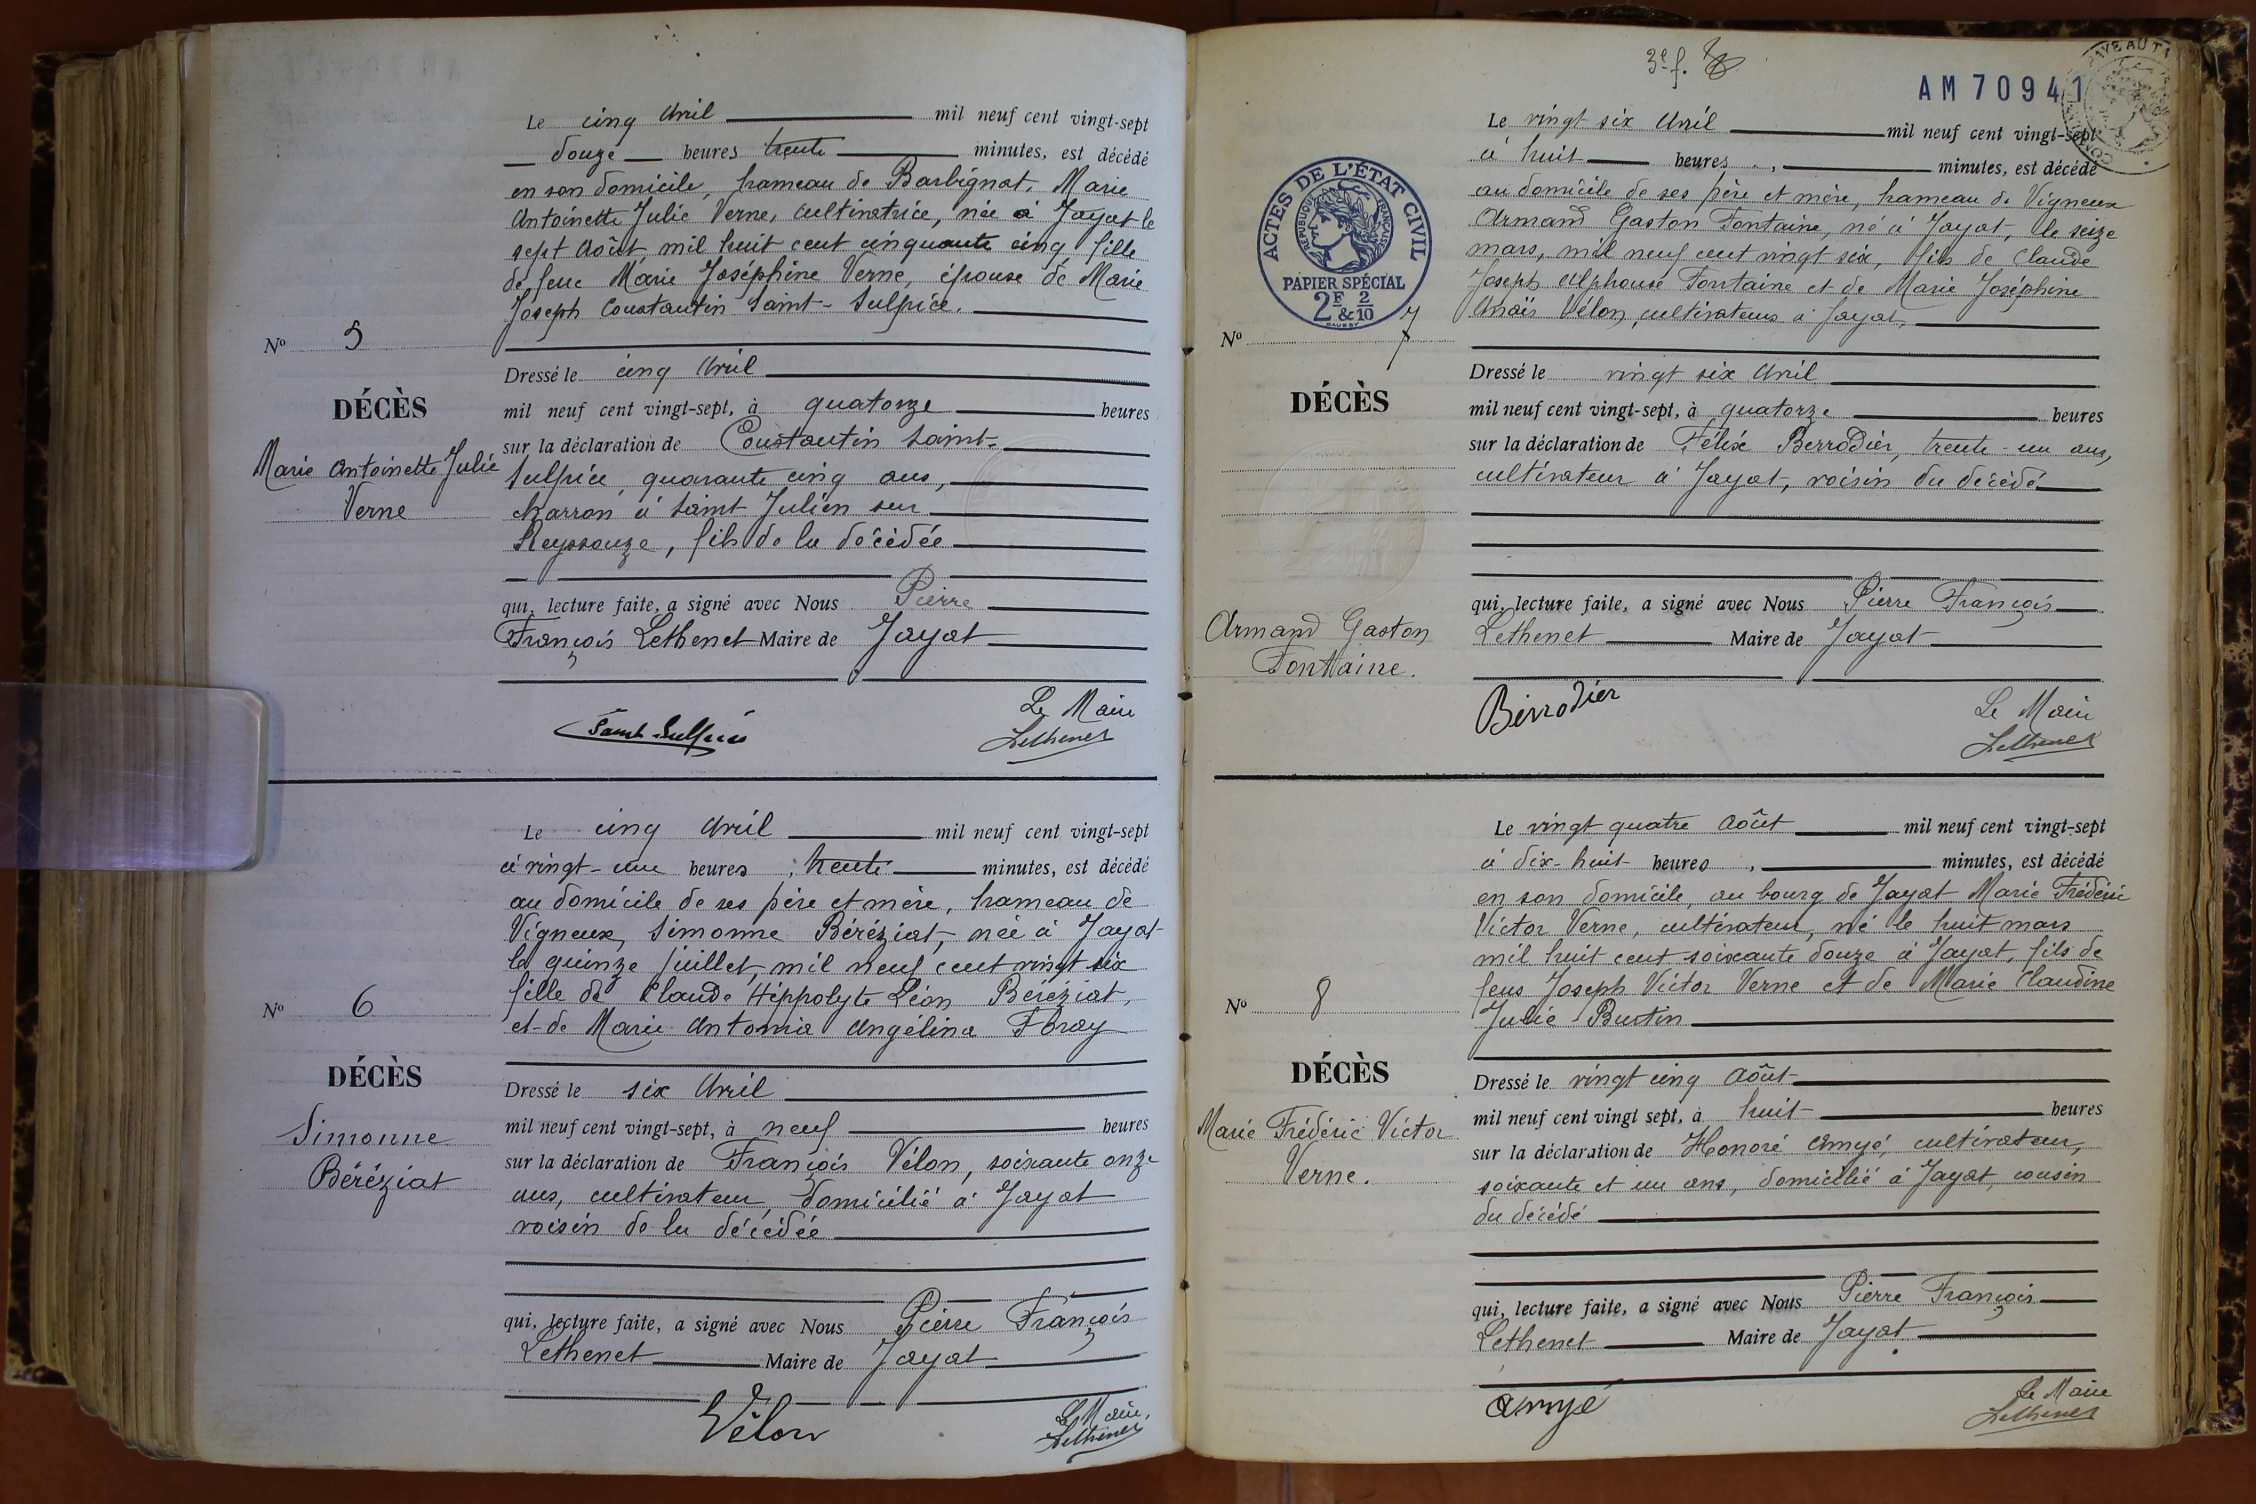 Le cinq Avril mil neuf cent vingt-sept
douze heures trente minutes, est décédé
en son domicile, hameau de Barbignat, Marie
Antoinette Julie Verne, cultivatrice, née à Jayat le
sept Août, mil huit cent cinquante cinq fille
de feue Marie Joséphine Verne, épouse de Marie
Joseph Constantin Saint-Sulpice.
No 5
Dressé le cinq Avril
DÉCÈS
mil neuf cent vingt-sept, à quatorze heures
sur la déclaration de Constantin Saint-
Marie Antoinette Julie
Verne
Sulpice, quarante cinq ans,
charron à Saint Julien sur
Reyssouze, fils de la décédée
qui, lecture faite, a signé avec Nous Pierre
François Lethenet Maire de Jayat
Le Maire
Saint-Sulpice
Lethenet
Le cinq Avril mil neuf cent vingt-sept
à vingt-une heures, trente minutes, est décédé
au domicile de ses père et mère, hameau de
Vigneux, Simonne Béréziat, née à Jayat
le quinze juillet, mil neuf cent vingt six
fille de Claude Hippolyte Léon Béréziat,
et de Marie Antonia Angélina Foray
No 6
DÉCÈS
Dressé le six Avril
Simonne
Béréziat
mil neuf cent vingt-sept, à neuf heures
sur la déclaration de François Vélon, soixante onze
ans, cultivateur domicilié à Jayat
voisin de la décédée
qui, lecture faite, a signé avec Nous Pierre François
Lethenet Maire de Jayat
Vélon
Le Maire,
Lethenet
3e f.
AM 70941
Le vingt six Avril mil neuf cent vingt-sept
à huit heures, minutes, est décédé
au domicile de ses père et mère, hameau de Vigneux
Armand Gaston Fontaine, né à Jayat, le seize
mars, mil neuf cent vingt six, fils de Claude
Joseph Alphonse Fontaine et de Marie Joséphine
Anaïs Vélon, cultivateurs à Jayat,
ACTES DE L'ÉTAT CIVIL
RÉPUBLIQUE FRANÇAISE
PAPIER SPÉCIAL
2F & 2/10
No 7
DÉCÈS
Dressé le vingt six Avril
mil neuf cent vingt-sept, à quatorze heures
sur la déclaration de Félix Berrodier, trente-un ans,
cultivateur à Jayat, voisin du décédé
qui, lecture faite, a signé avec Nous Pierre François
Armand Gaston
Fontaine.
Lethenet Maire de Jayat
Berrodier
Le Maire
Lethenet
Le vingt quatre Août mil neuf cent vingt-sept
à dix-huit heures, minutes, est décédé
en son domicile, au bourg de Jayat Marie Frédéric
Victor Verne, cultivateur, né le huit mars
mil huit cent soixante douze à Jayat, fils de
feus Joseph Victor Verne et de Marie Claudine
Julie Burtin
No 8
DÉCÈS
Dressé le vingt cinq Août
Marie Frédéric Victor
Verne.
mil neuf cent vingt sept, à huit heures
sur la déclaration de Honoré Amyé, cultivateur,
soixante et un ans, domicilié à Jayat, cousin
du décédé
qui, lecture faite, a signé avec Nous Pierre François
Lethenet Maire de Jayat
Amyé
Le Maire
Lethenet